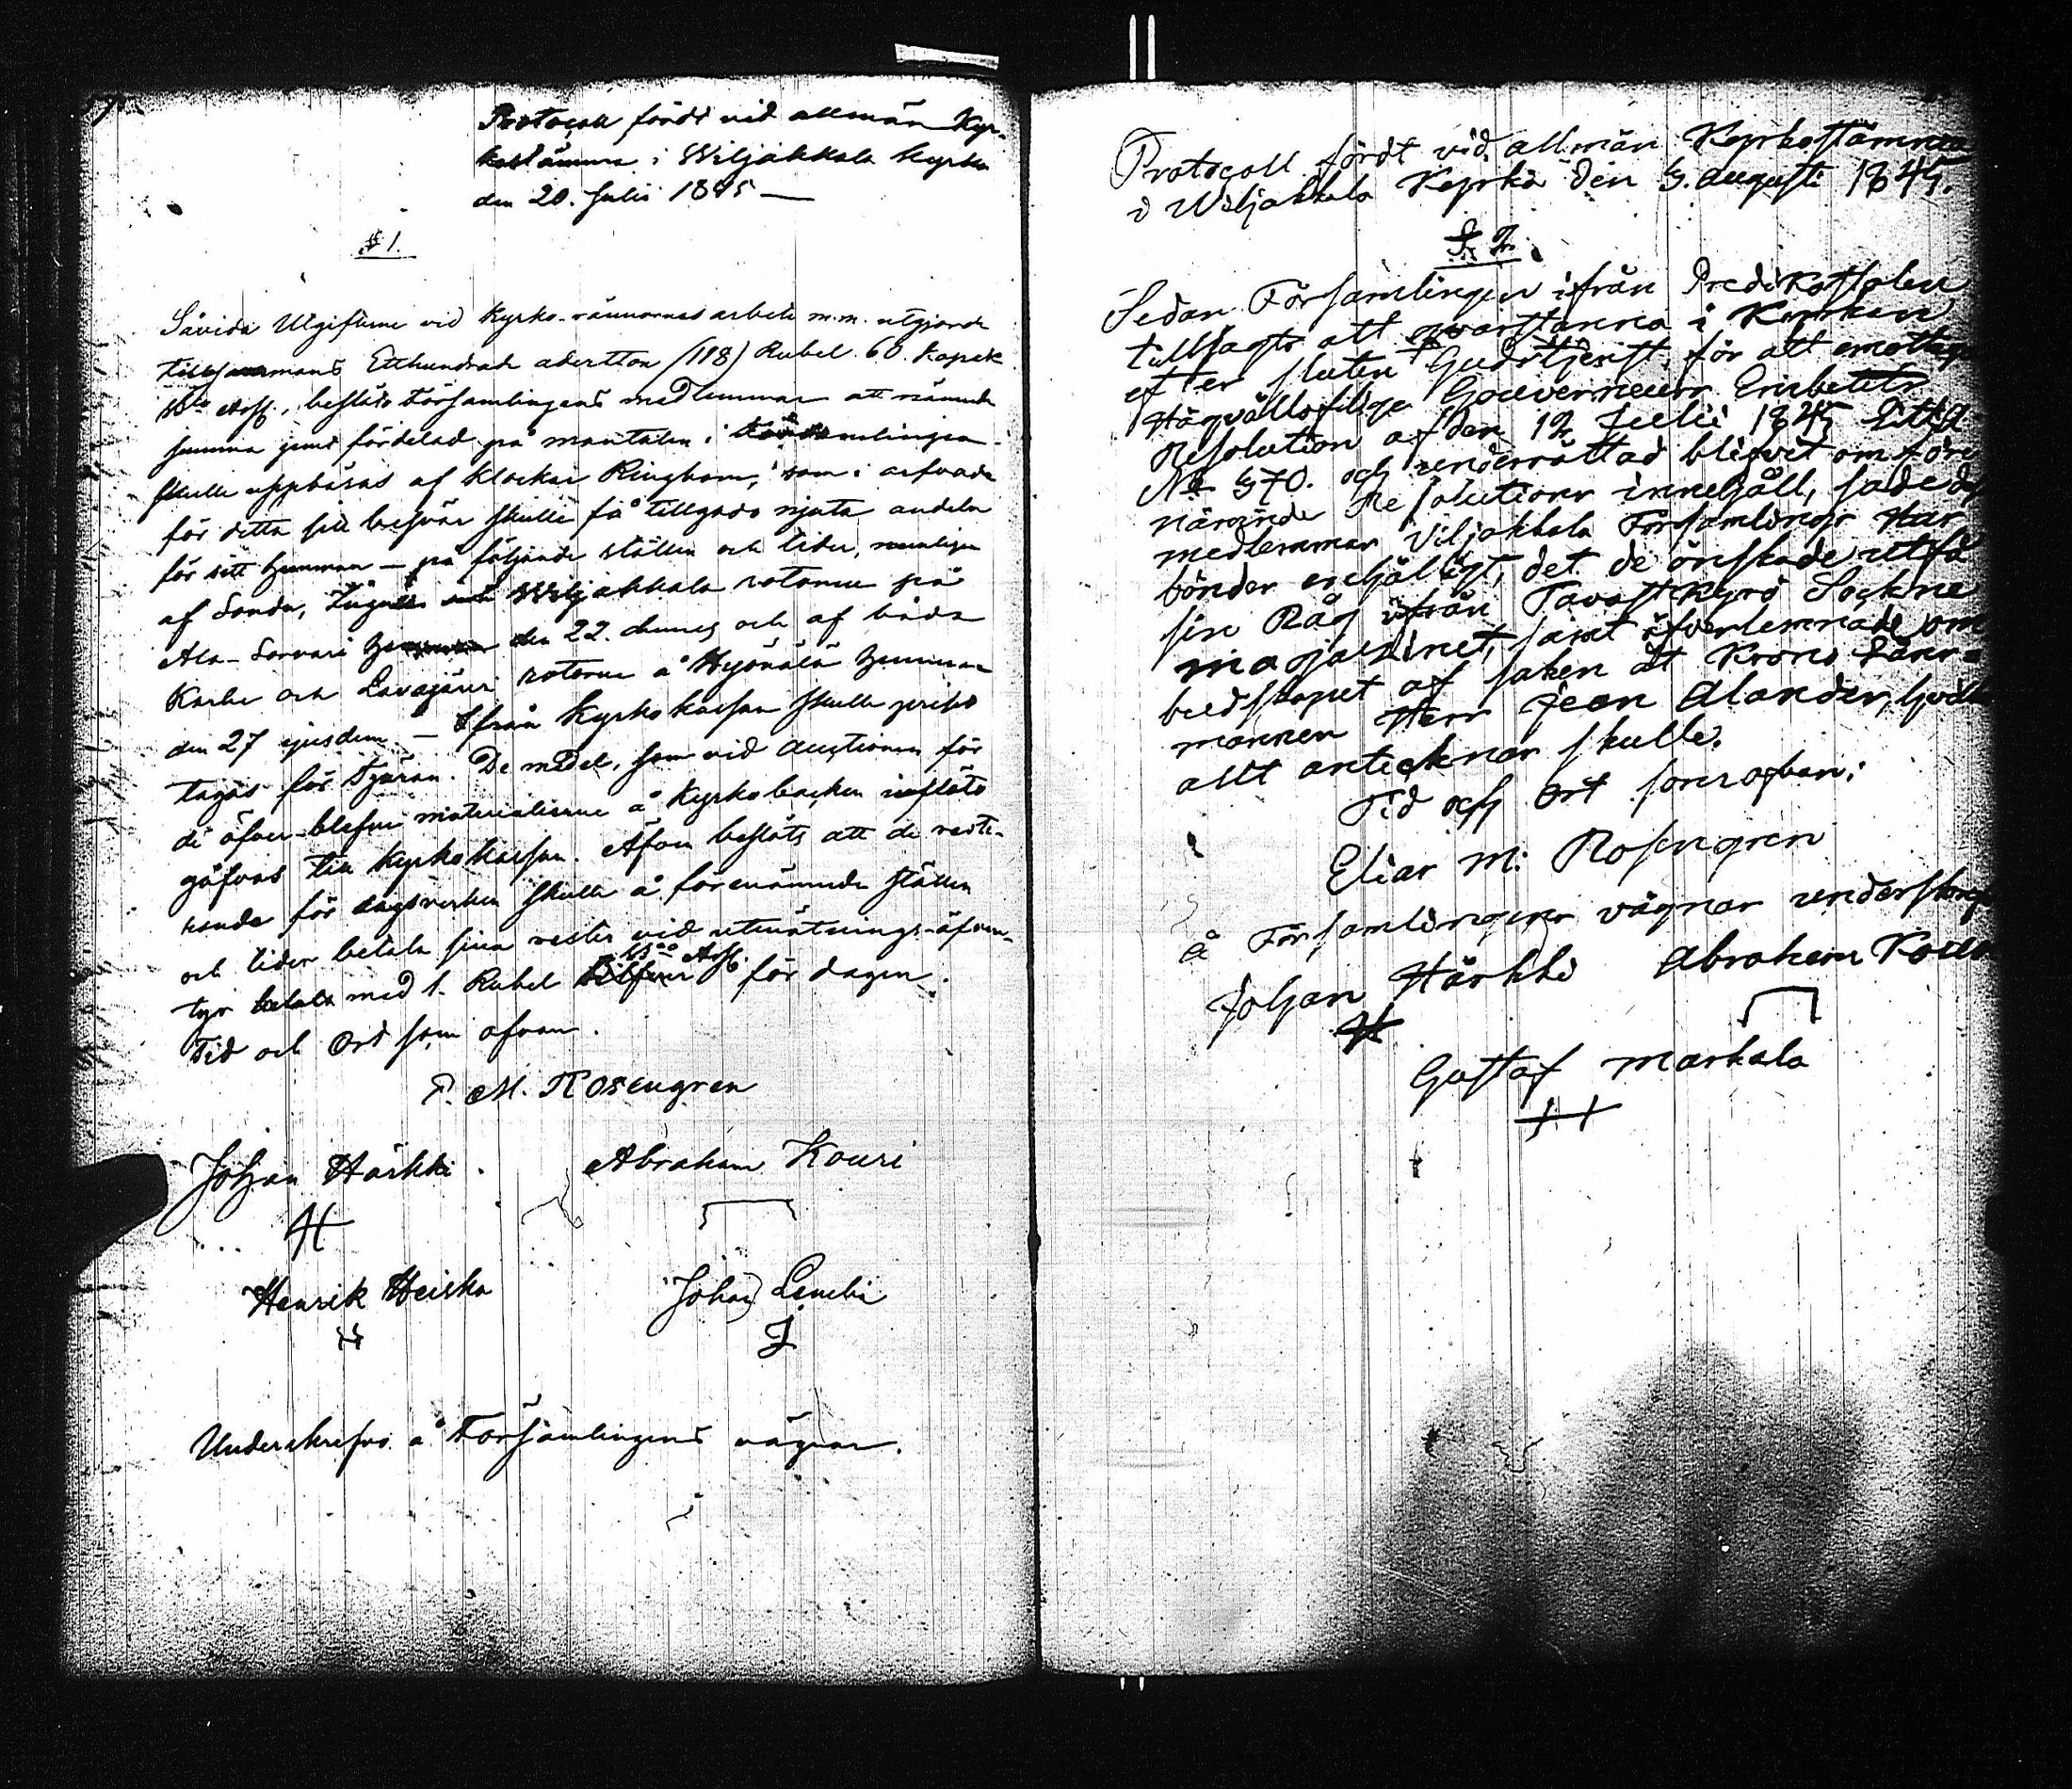 Protocoll fördt vid allmän Kyr-
kostämma i Wiljakkala Kyrka
den 20. Julii 1845 —
§ 1.
Såvida Utgifterne vid Kyrko-rännornas arbete m.m. utgjorde
tillsammans Etthundrade aderton (118) Rubel 60. Kopek
B:co Ass., beslöts Församlingens medlemmar att nämnde
summa jemt fördelad på mantalen i Församlingen
skulle uppbäras af Klockar Ringbom, som i arfvode
för detta sitt besvär skulle få tillgodo njuta andelen
för sitt hemman — på följande ställen och tider, nemligen
af Wiljakkala rotarne på
Ala-Sorvari den 22. hujus och af båda
Karhe och Lavajärvi rotarne å Hyönälä hemman
den 27 ejusdem — Ifrån Kyrkokassan skulle
tagas för tjäran. De medel, som vid auctionen för
de öfver-blefne materialierne å Kyrkobacken inflöto
gåfvos till Kyrkokassan. Äfven beslöts att de reste-
rande för dagsverken skulle å förenämnde ställen
och tider betala sina rester vid utmätnings-äfven-
tyr med 1. Rubel B:co Ass. för dagen.
Tid och Ort som ofvan.
M. Rosengren
Johan Härkki. Abraham Kouri
H
Henrik Heiska Johan Lembi
Underskrefvo å Församlingens vägnar.
Protocoll fördt vid allmän Kyrkostämma
i Wiljakkala Kyrka den 3. Augusti 1845.
§ 2.
Sedan Församlingen ifrån Predikostolen
tillsagts att qvarstanna i Kyrkan
efter sluten Gudstjenst, för att emottaga
Högvällofliga Gouverneurs Embetets
Resolution af den 12 Julii 1845 Litt.
No 570. och underrättad blifvit om före
nämnde Resolutions innehåll, sade
medlemmar Viljakkala Församlings
bönder enhälligt, det de önskade utfå
sin Råg ifrån Tavastkyro Sockne
magazinet, samt öfverlemnade om
budskapet af saken åt Krono Läns-
mannen Herr Alander,
allt antecknas skulle.
Tid och Ort som ofvan:
Elias M: Rosengren
å Församlingens vägnar underskrefvo
Johan Härkki Abraham Kouri
H
Gustaf Markala